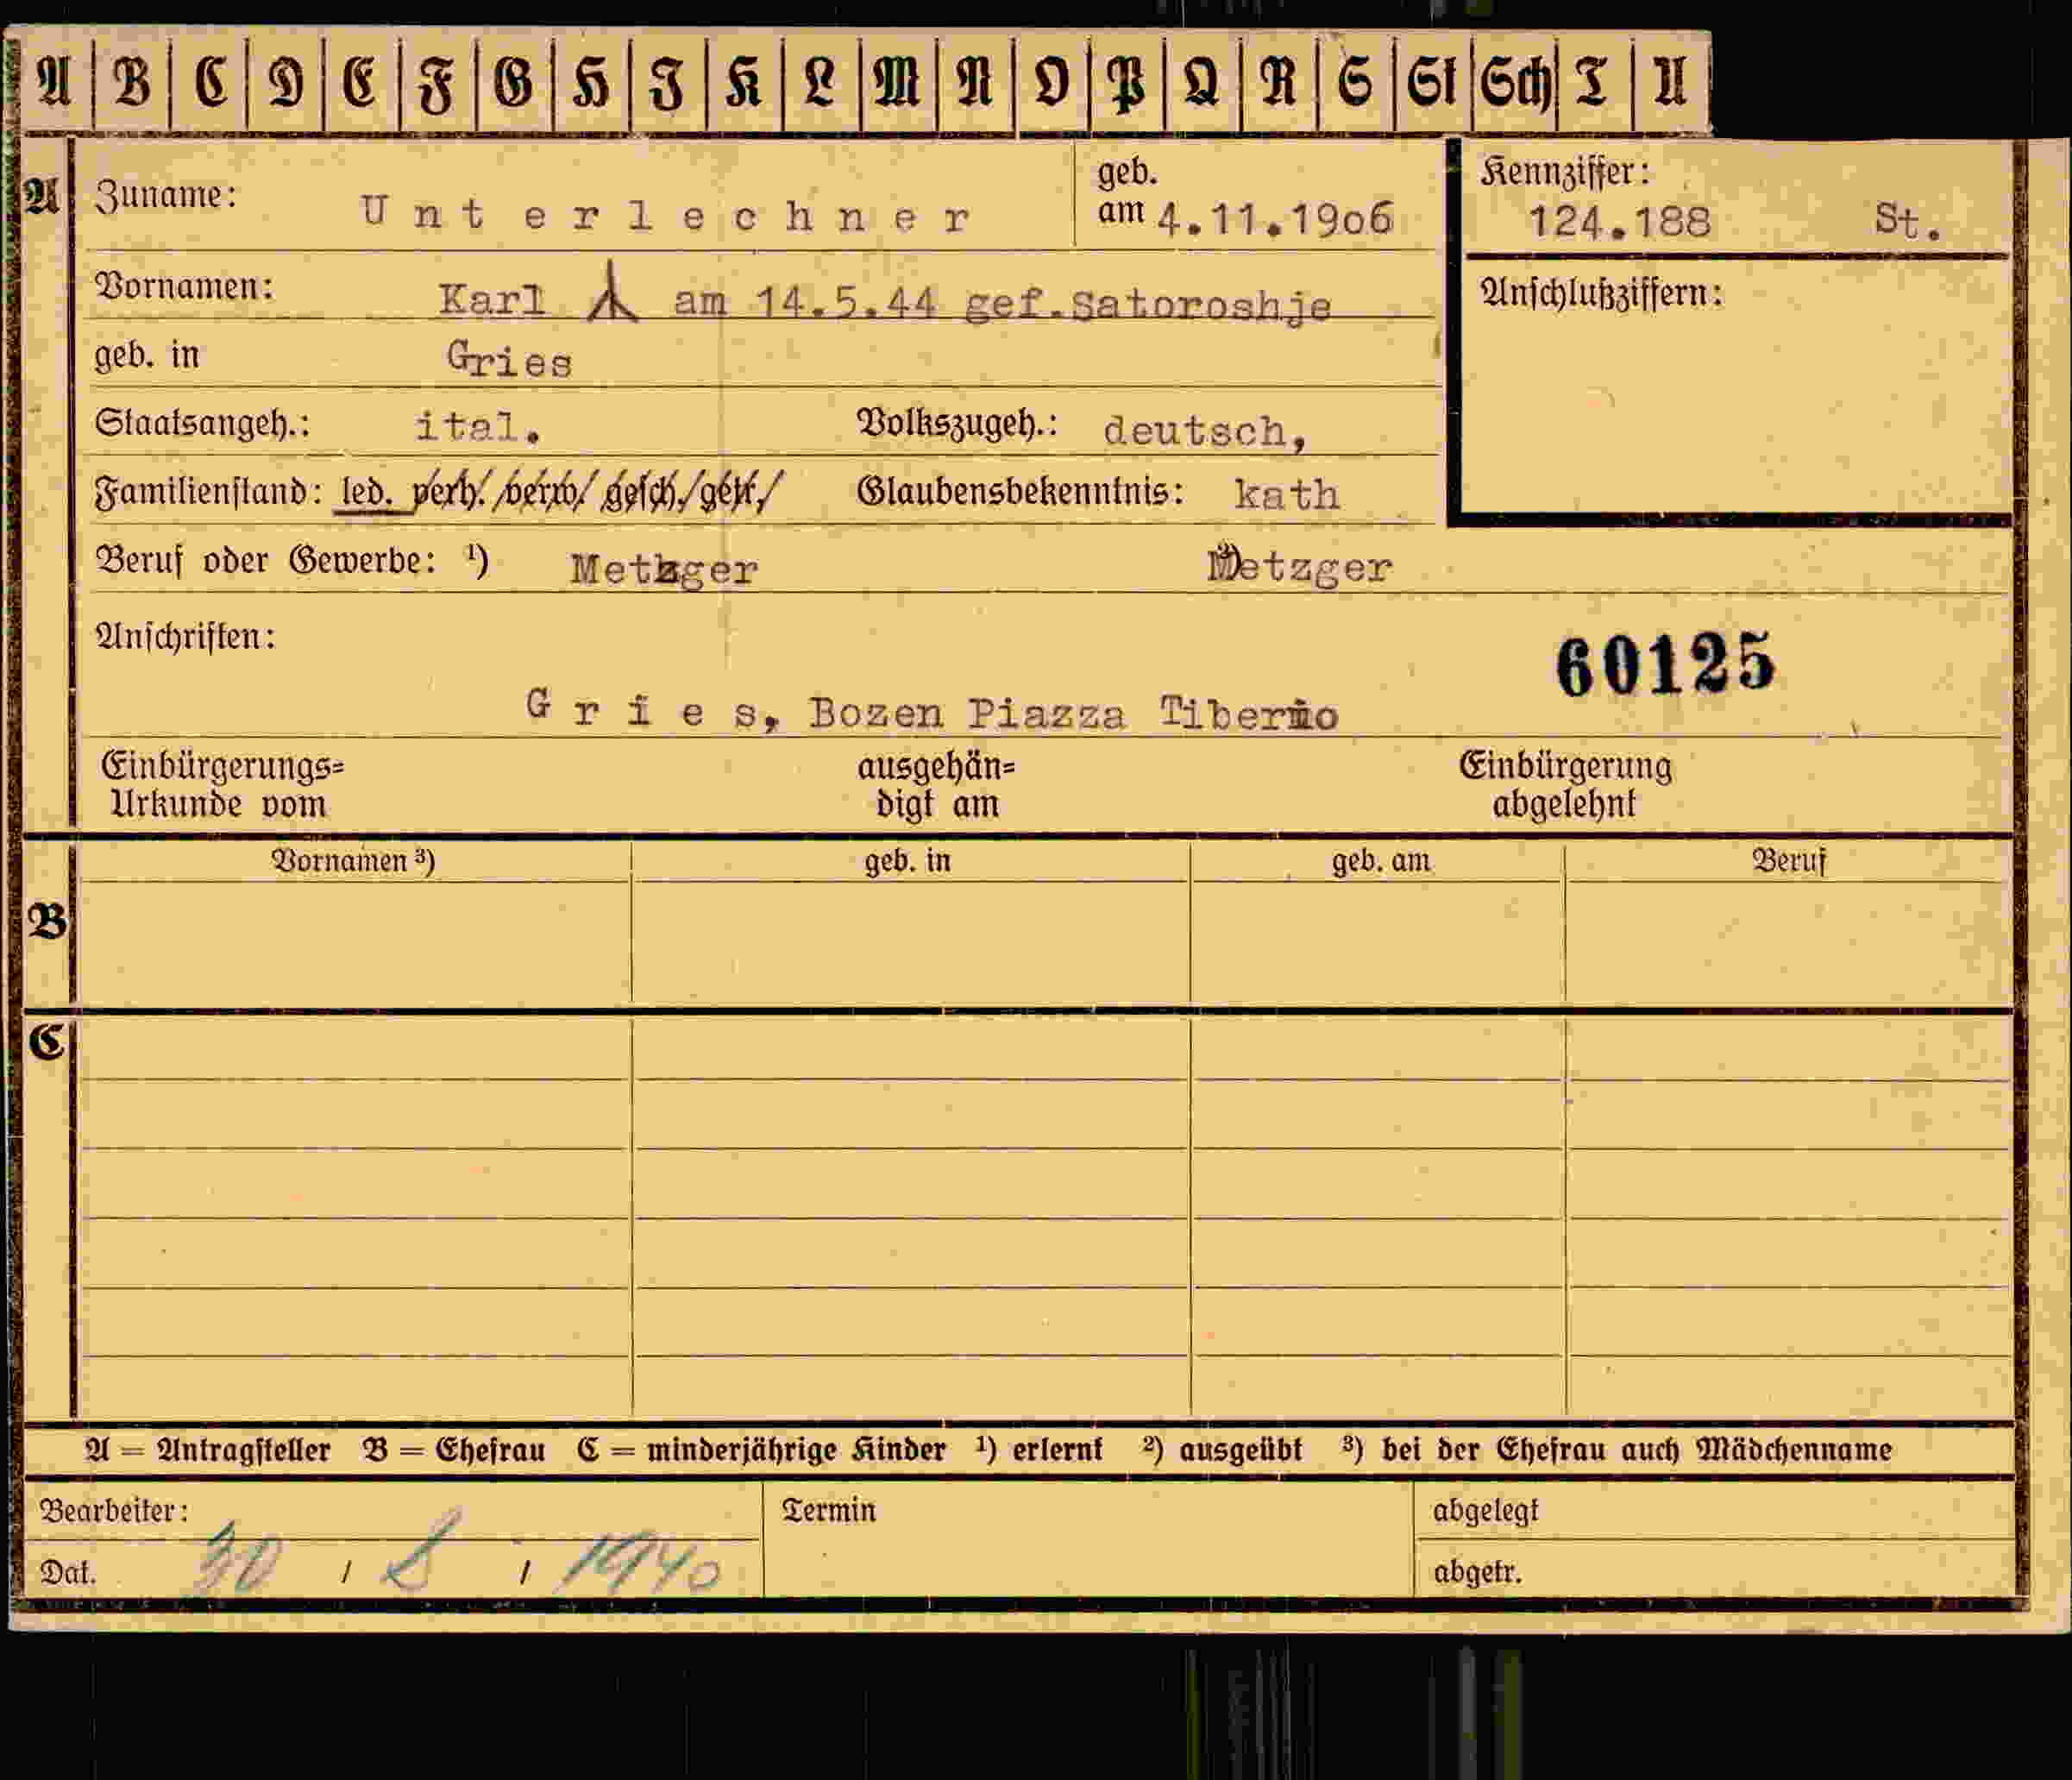 A B C D E F G H I K L M N O P Q R S St Sch T U
A Zuname: Unterlechner geb. am 4.11.1906 Kennziffer: 124.188 St.
Vornamen: Karl am 14.5.44 gef.Satoroshje Anschlußziffern:
geb. in Gries
Staatsangeh.: ital. Volkszugeh.: deutsch,
Familienstand: led. verh./verw./gesch./getr./ Glaubensbekenntnis: kath
Beruf oder Gewerbe: ¹) Metzger ²) Metzger
Anschriften: 60125
Gries, Bozen Piazza
Einbürgerungs= ausgehän= Einbürgerung
Urkunde vom digt am abgelehnt
Vornamen ³) geb. in geb. am Beruf
B
C
A = Antragsteller B = Ehefrau C = minderjährige Kinder ¹) erlernt ²) ausgeübt ³) bei der Ehefrau auch Mädchenname
Bearbeiter: Termin abgelegt
Dat. 30 / 8 / 1940 abgetr.